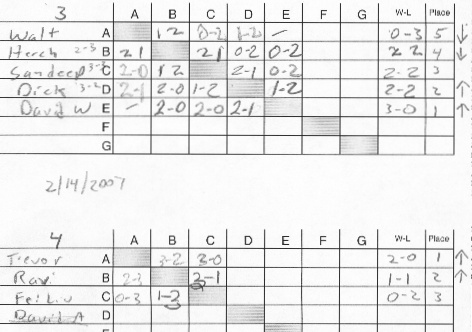 3 A B C D E F G W-L Place
Walt A 1 2 0-2 1-2 — 0-3 5 ↓
Herch 2-3 B 2 1 2 1 0-2 0-2 2 2 4 ↓
Sandeep 3-3 C 2-0 1 2 2-1 0-2 2-2 3
Dick 3-2 D 2-1 2-0 1-2 1-2 2-2 2 ↑
David W E — 2-0 2-0 2-1 3-0 1 ↑
F
G
2/14/2007
4 A B C D E F G W-L Place
Trevor A 3-2 3-0 2-0 1 ↑
Ravi B 2-3 2-1 1-1 2 ↑
Fei Liu C 0-3 1-2 0-2 3
David A D
E